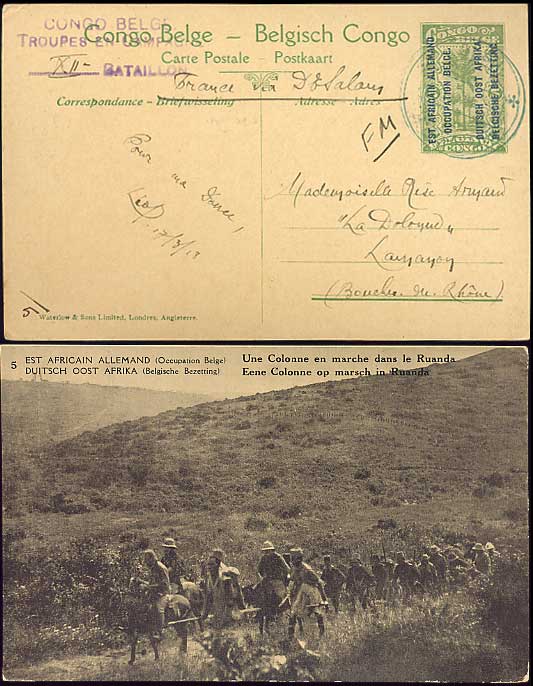 CONGO BELGE
TROUPES EN CAMPAGNE
XII
BATAILLON
Congo Belge – Belgisch Congo
Carte Postale - Postkaart
France via D'ESalam
Correspondance - Briefwisseling
Adresse - Adres
EST AFRICAIN ALLEMAND
OCCUPATION BELGE
DUITSCH OOST AFRIKA
BELGISCHE BEZETTING
CONGO
FM
Pour ma
17/3/18
Mademoiselle Rose
"La
(Bouches du Rhône)
5
Waterlow & Sons Limited, Londres, Angleterre.
5 EST AFRICAIN ALLEMAND (Occupation Belge)
DUITSCH OOST AFRIKA (Belgische Bezetting)
Une Colonne en marche dans le Ruanda
Eene Colonne op marsch in Ruanda